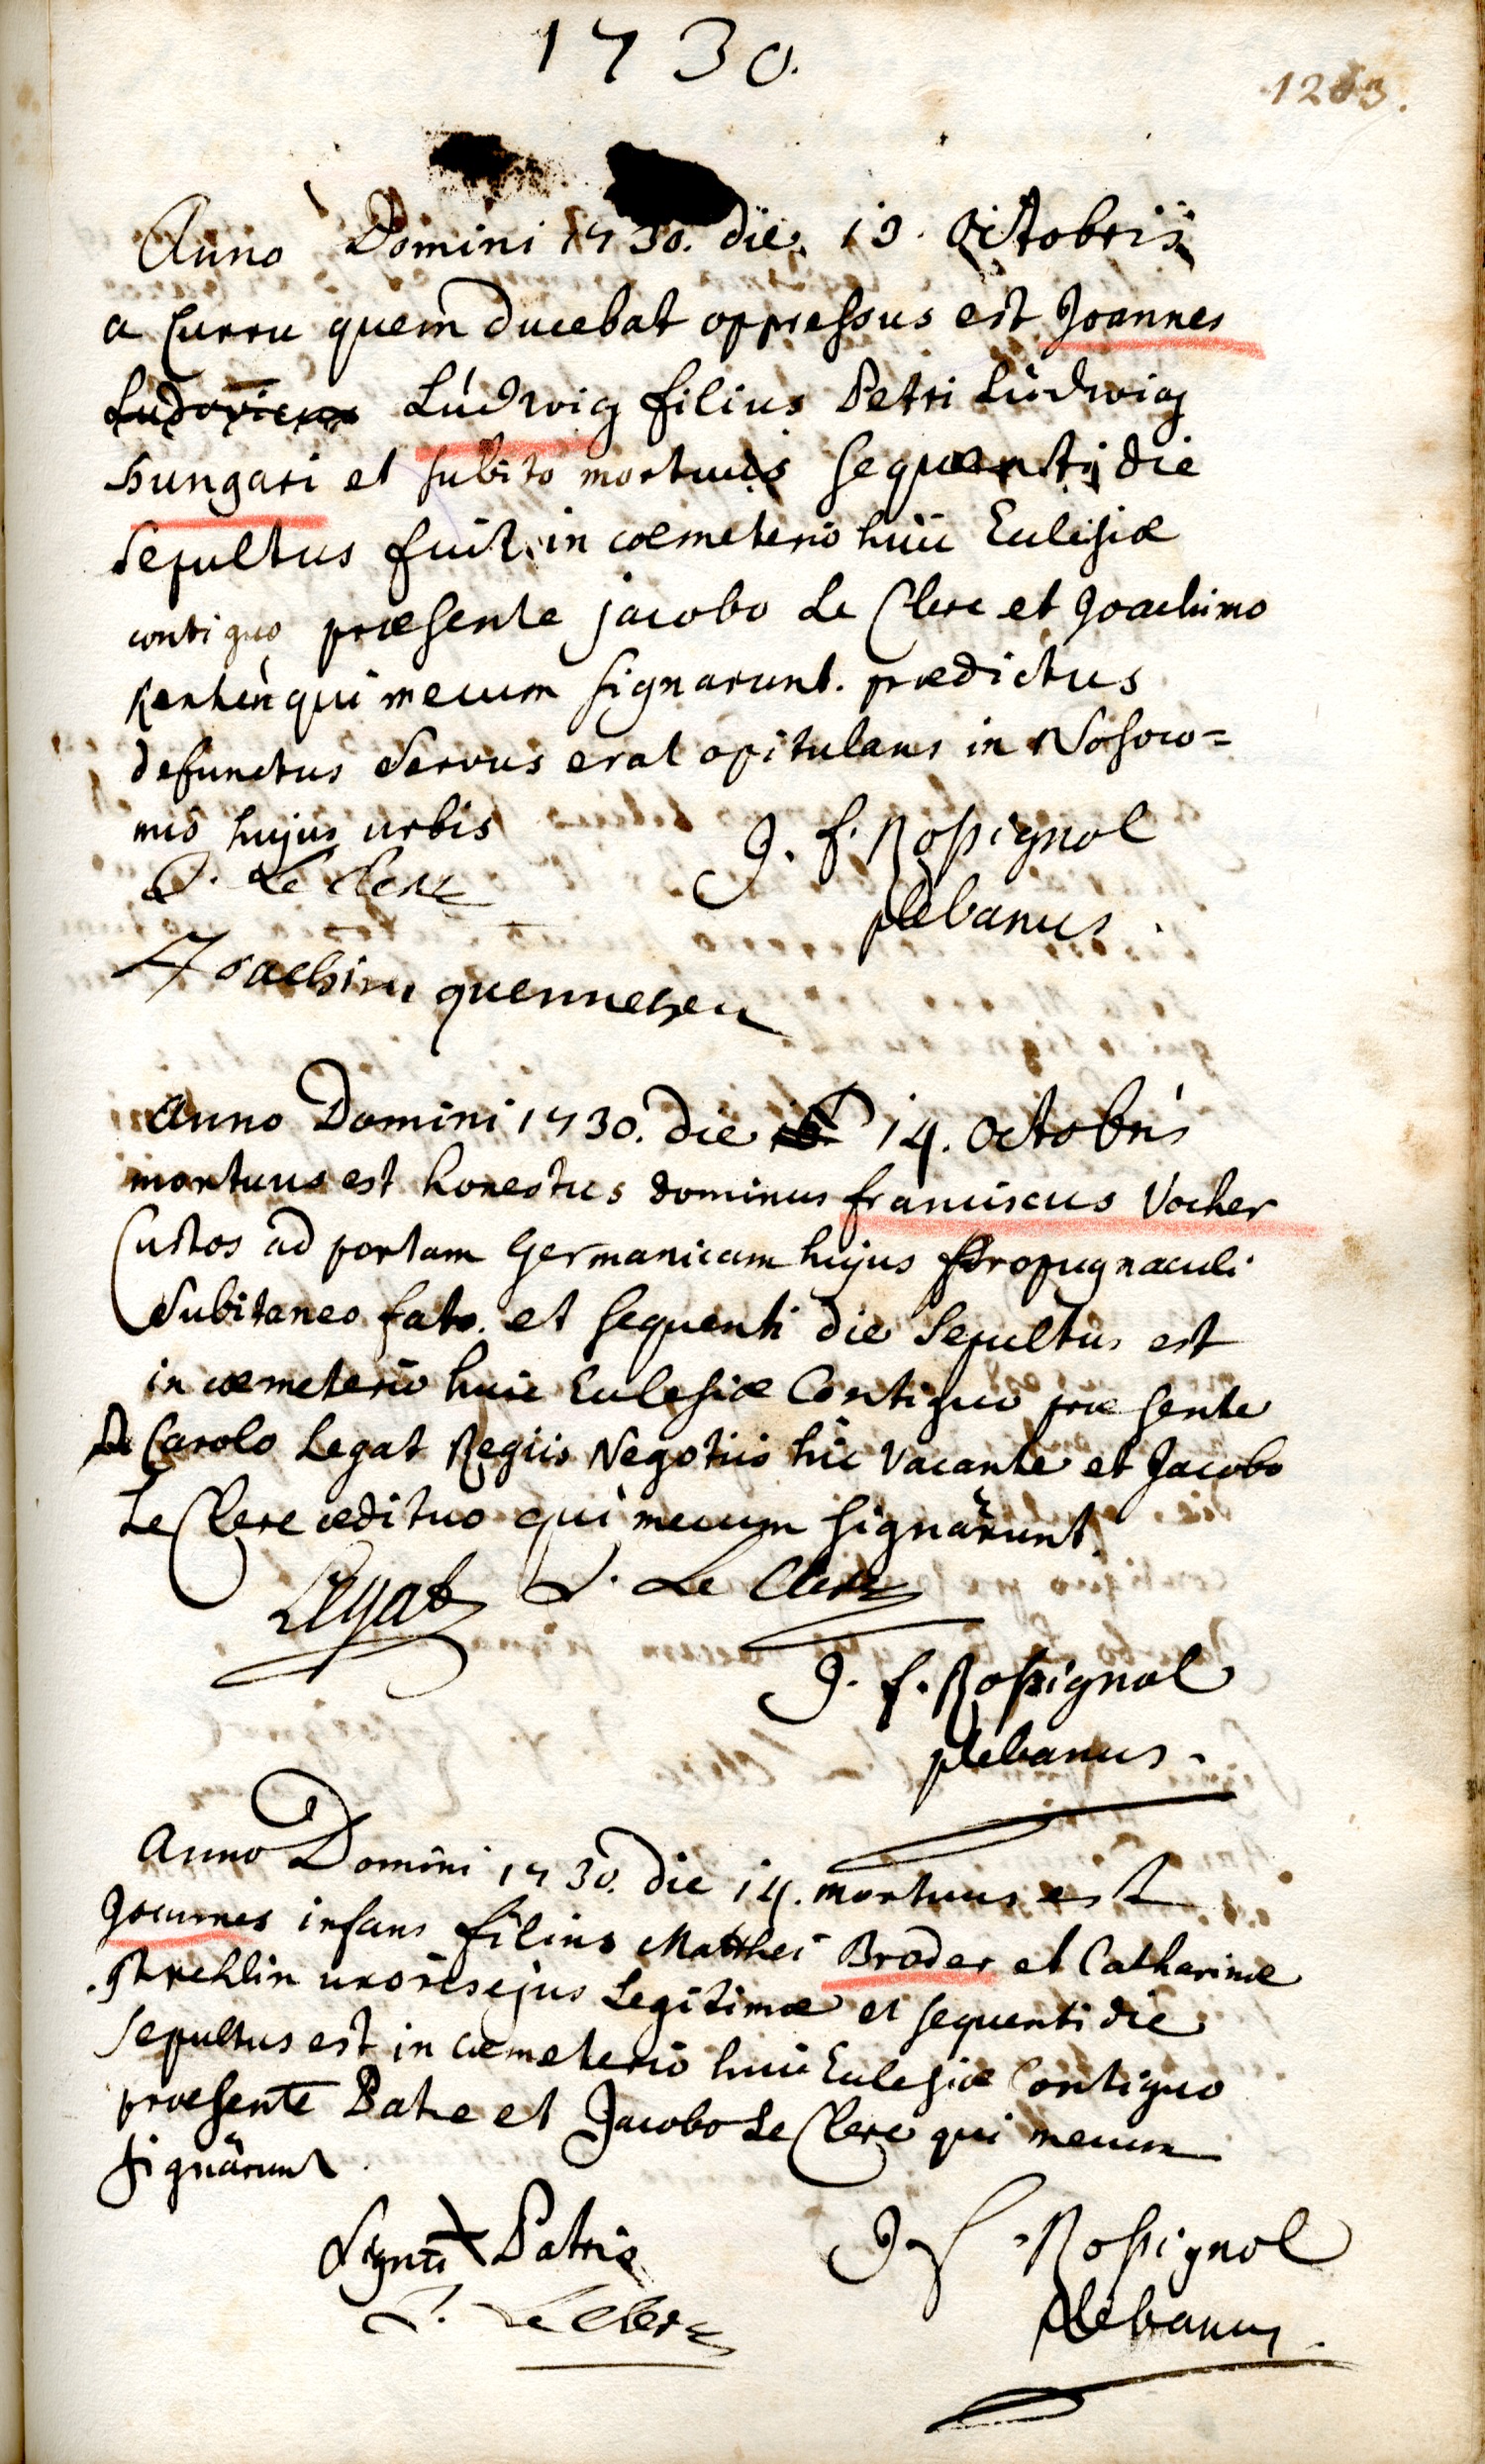 1730.
1263.
Anno Domini 1730. die 13. Octobris
a Curru quem Ducebat oppressus est Joannes
Ludovicus Ludwig filius Petri Ludwig
hungari et subito mortuus sequenti die
Sepultus fuit in coemeterio huic Eclesiæ
contiguo præsente jacobo Le Clerc et Joachimo
qui mecum signarunt. prædictus
defunctus Servus erat opitulans in Nosoco=
mio hujus urbis
J. Le Clerc
J. f. Rossignol
plebanus.
Joachim quennehen
Anno Domini 1730. die 14. Octobris
mortuus est honestus dominus franciscus Vocher
Custos ad portam Germanicam hujus propugnaculi
Subitaneo fato. et sequenti die Sepultus est
in coemeterio huic Eclesiæ Contiguo præsente
D. Carolo Legat Regiis Negotiis hic vacante et Jacobo
Le Clerc ædituo qui mecum signarunt.
Legat J. Le Clerc
J. f. Rossignol
plebanus.
Anno Domini 1730. die 14. mortuus est
Joannes infans filius Matthei Broder et Catharinæ
uxoris ejus Legitimæ et sequenti die
sepultus est in coemeterio huic Eclesiæ Contiguo
præsente Patre et Jacobo Le Clerc qui mecum
signarunt.
Signū + Patris
J. Le Clerc
J. f. Rossignol
plebanus.